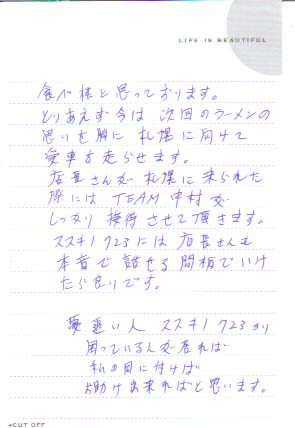 LIFE IS BEAUTIFUL
食べ様と思っております。
とりあえず今は 次回のラーメンの
思いを胸に 札幌に向けて
愛車を走らせます。
店長さんが 札幌に来られた
際には TEAM 中村が
しっかり 接待 させて頂きます。
ススキノ723には 店長さんも
本音で 話せる 間柄でいけ
たら良りです。
夢追い人 ススキノ723より
困っている人が居れば
私の目に付けば
お助け出来ればと思います。
◄CUT OFF